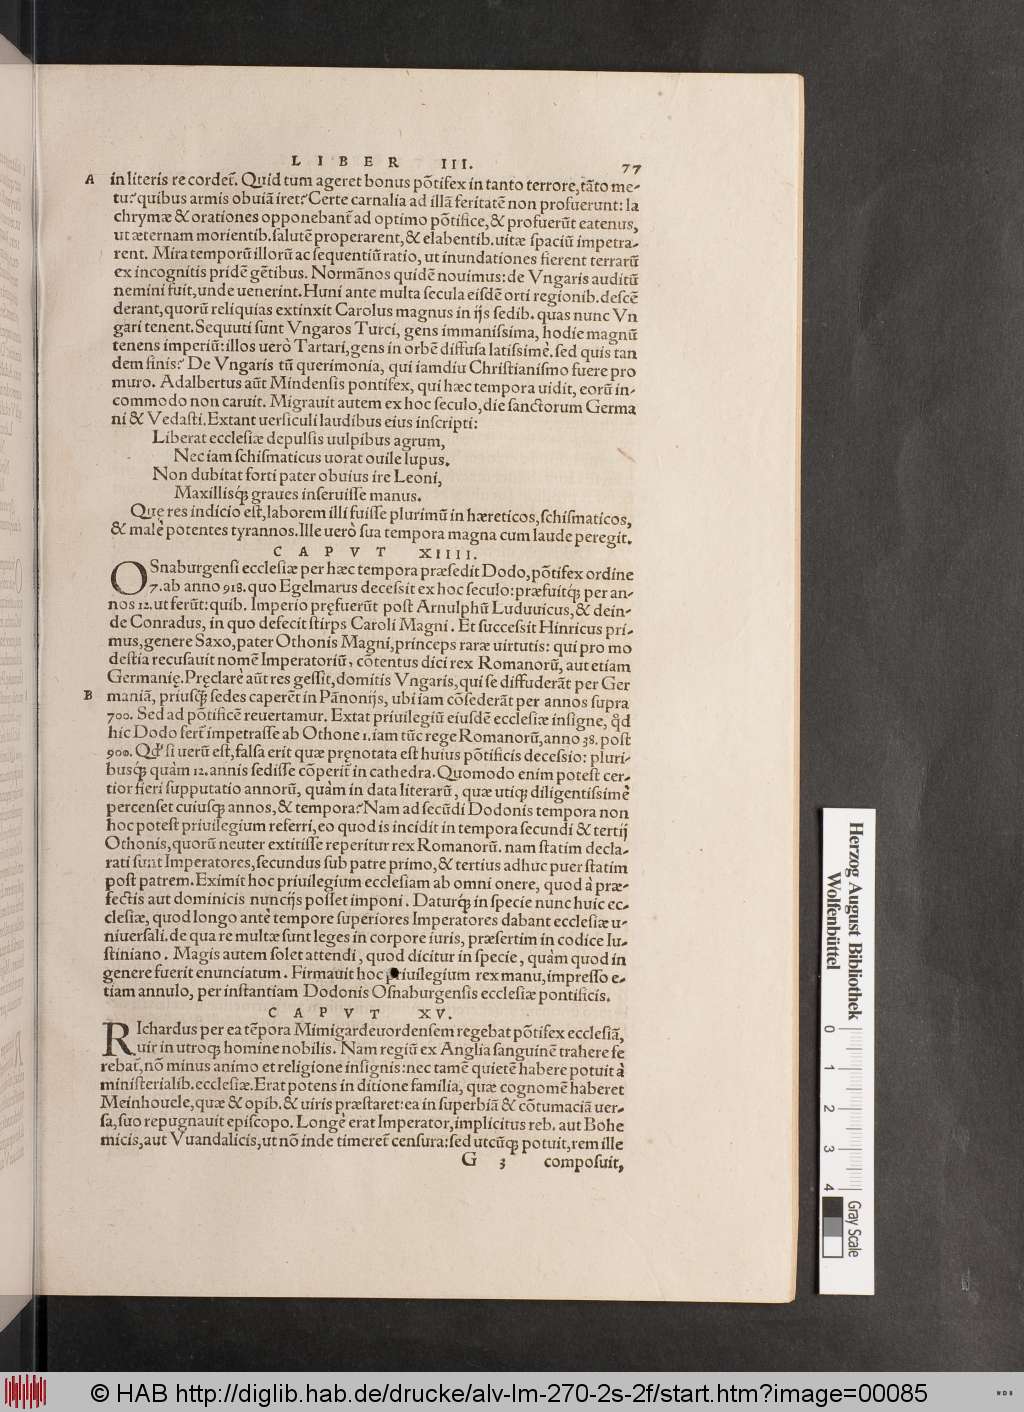 LIBER III. 77
A in literis recordet᷒. Quid tum ageret bonus põtifex in tanto terrore, tãto me-
tu? quibus armis obuiã iret? Certe carnalia ad illã feritatẽ non profuerunt: la
chrymæ & orationes opponebant᷒ ad optimo põtifice, & profuerũt eatenus,
ut æternam morientib. ſalutẽ properarent, & elabentib. uitæ ſpaciũ impetra-
rent. Mira temporũ illorũ ac ſequentiũ ratio, ut inundationes fierent terrarũ
ex incognitis pridẽ gẽtibus. Normãnos quidẽ nouimus: de Vngaris auditũ
nemini fuit, unde uenerint. Huni ante multa ſecula eiſdẽ orti regionib. deſcẽ
derant, quorũ reliquias extinxit Carolus magnus in ijs ſedib. quas nunc Vn
gari tenent. Sequuti ſunt Vngaros Turci, gens immaniſsima, hodie magnũ
tenens imperiũ: illos uerò Tartari, gens in orbẽ diffuſa latiſsimè. ſed quis tan
dem finis? De Vngaris tũ querimonia, qui iamdiu Chriſtianiſmo fuere pro
muro. Adalbertus aũt Mindenſis pontifex, qui hæc tempora uidit, eorũ in-
commodo non caruit. Migrauit autem ex hoc ſeculo, die ſanctorum Germa
ni & Vedaſti. Extant uerſiculi laudibus eius inſcripti:
Liberat eccleſiæ depulſis uulpibus agrum,
Nec iam ſchiſmaticus uorat ouile lupus.
Non dubitat forti pater obuius ire Leoni,
Maxillisq́ꝫ graues inſeruiſſe manus.
Quę res indicio eſt, laborem illi fuiſſe plurimũ in hæreticos, ſchiſmaticos,
& malè potentes tyrannos. Ille uerò ſua tempora magna cum laude peregit.
CAPVT XIIII.
OSnaburgenſi eccleſiæ per hæc tempora præſedit Dodo, põtifex ordine
7. ab anno 918. quo Egelmarus deceſsit ex hoc ſeculo: præfuitq́ꝫ per an-
nos 12. ut ferũt: quib. Imperio pręfuerũt poſt Arnulphũ Luduuicus, & dein-
de Conradus, in quo defecit ſtirps Caroli Magni. Et ſucceſsit Hinricus pri-
mus, genere Saxo, pater Othonis Magni, princeps raræ uirtutis: qui pro mo
deſtia recuſauit nomẽ Imperatoriũ, cõtentus dici rex Romanorũ, aut etiam
Germanię. Pręclarè aũt res geſsit, domitis Vngaris, qui ſe diffuderãt per Ger
B maniã, priuſq́ꝫ ſedes caperẽt in Pãnonijs, ubi iam cõſederãt per annos ſupra
700. Sed ad põtificẽ reuertamur. Extat priuilegiũ eiuſdẽ eccleſiæ inſigne, qd̃
hic Dodo fert᷒ impetraſſe ab Othone 1. iam tũc rege Romanorũ, anno 38. poſt
900. Qd̃ ſi uerũ eſt, falſa erit quæ pręnotata eſt huius põtificis deceſsio: pluri-
busq́ꝫ quàm 12. annis ſediſſe cõperit᷒ in cathedra. Quomodo enim poteſt cer-
tior fieri ſupputatio annorũ, quàm in data literarũ, quæ utiqꝫ diligentiſsimè
percenſet cuiuſqꝫ annos, & tempora? Nam ad ſecũdi Dodonis tempora non
hoc poteſt priuilegium referri, eo quod is incidit in tempora ſecundi & tertij
Othonis, quorũ neuter extitiſſe reperitur rex Romanorũ. nam ſtatim decla-
rati ſunt Imperatores, ſecundus ſub patre primo, & tertius adhuc puer ſtatim
poſt patrem. Eximit hoc priuilegium eccleſiam ab omni onere, quod à præ-
fectis aut dominicis nuncijs poſſet imponi. Daturq́ꝫ in ſpecie nunc huic ec-
cleſiæ, quod longo antè tempore ſuperiores Imperatores dabant eccleſiæ u-
niuerſali. de qua re multæ ſunt leges in corpore iuris, præſertim in codice Iu-
ſtiniano. Magis autem ſolet attendi, quod dicitur in ſpecie, quàm quod in
genere fuerit enunciatum. Firmauit hoc priuilegium rex manu, impreſſo e-
tiam annulo, per inſtantiam Dodonis Oſnaburgenſis eccleſiæ pontificis.
CAPVT XV.
RIchardus per ea tẽpora Mimigardeuordenſem regebat põtifex eccleſiã,
uir in utroqꝫ homine nobilis. Nam regiũ ex Anglia ſanguinẽ trahere ſe
rebat, nõ minus animo et religione inſignis: nec tamẽ quietẽ habere potuit à
miniſterialib. eccleſiæ. Erat potens in ditione familia, quæ cognomẽ haberet
Meinhouele, quæ & opib. & uiris præſtaret: ea in ſuperbiã & cõtumaciã uer-
ſa, ſuo repugnauit epiſcopo. Longè erat Imperator, implicitus reb. aut Bohe
micis, aut Vuandalicis, ut nõ inde timeret᷒ cenſura: ſed utcũqꝫ potuit, rem ille
G 3 compoſuit,
Herzog August Bibliothek
Wolfenbüttel
0 1 2 3 4
Gray Scale
© HAB http://diglib.hab.de/drucke/alv-lm-270-2s-2f/start.htm?image=00085